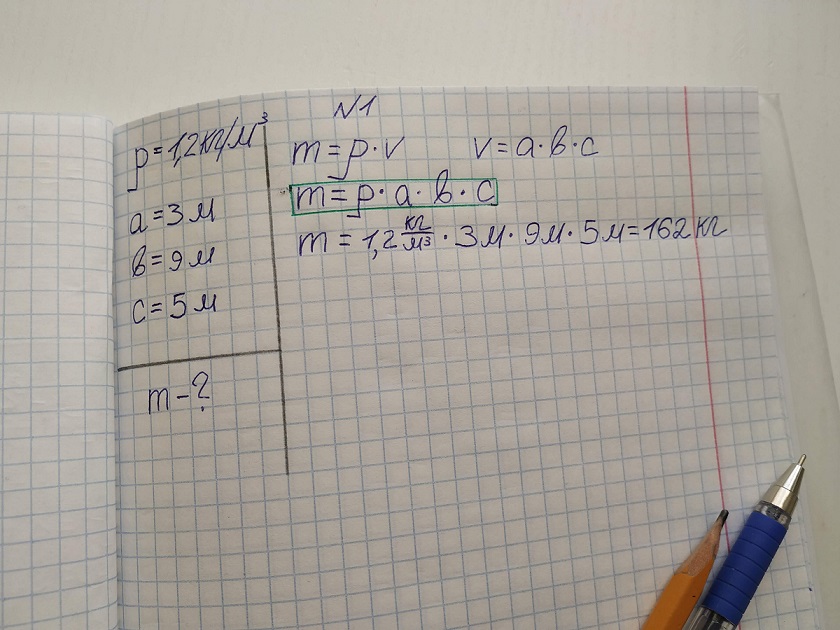 N1
ρ=1,2кг/м³
a=3м
в=9м
c=5м
m-?
m=ρ·v v=a·в·c
m=ρ·a·в·c
m=1,2 кг/м³ · 3м · 9м · 5м=162кг